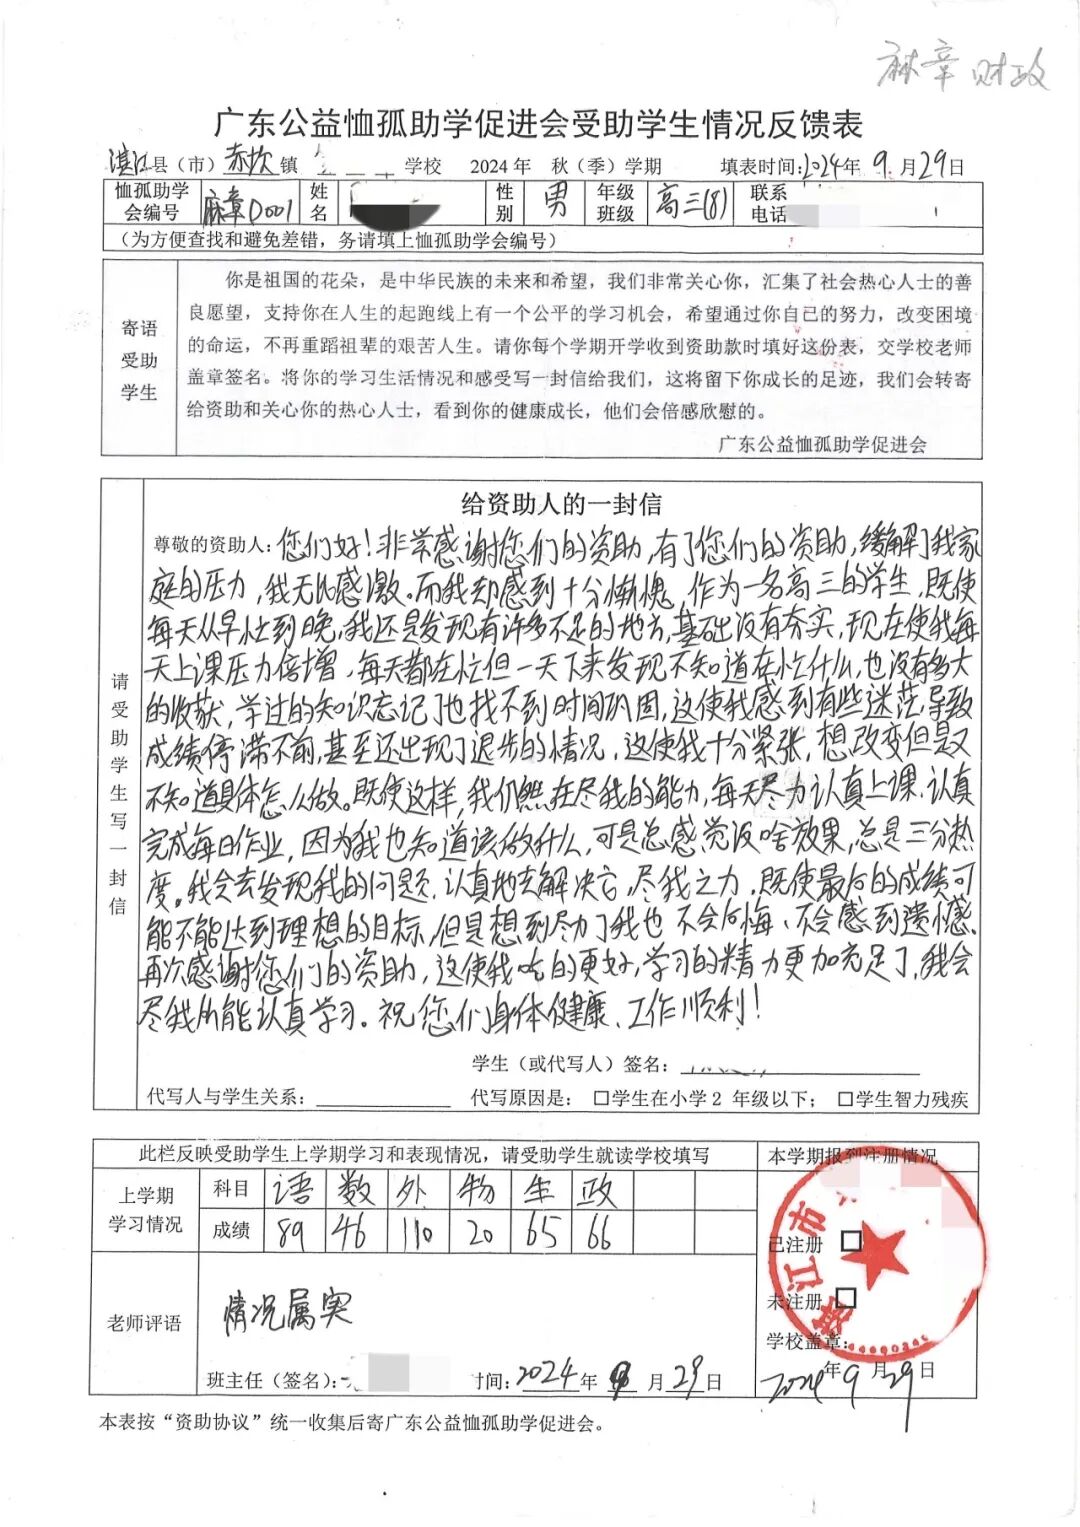 麻章财政
广东公益恤孤助学促进会受助学生情况反馈表
湛江县（市）赤坎镇 学校 2024年 秋（季）学期 填表时间:2024年9月29日
恤孤助学会编号 麻章D001 姓名 性别 男 年级班级 高三(8) 联系电话
（为方便查找和避免差错，务请填上恤孤助学会编号）
寄语受助学生
你是祖国的花朵，是中华民族的未来和希望，我们非常关心你，汇集了社会热心人士的善
良愿望，支持你在人生的起跑线上有一个公平的学习机会，希望通过你自己的努力，改变困境
的命运，不再重蹈祖辈的艰苦人生。请你每个学期开学收到资助款时填好这份表，交学校老师
盖章签名。将你的学习生活情况和感受写一封信给我们，这将留下你成长的足迹，我们会转寄
给资助和关心你的热心人士，看到你的健康成长，他们会倍感欣慰的。
广东公益恤孤助学促进会
请受助学生写一封信
给资助人的一封信
尊敬的资助人：您们好！非常感谢您们的资助，有了您们的资助，缓解了我家
庭的压力，我无比感激。而我却感到十分惭愧，作为一名高三的学生，既使
每天从早忙到晚，我还是发现有许多不足的地方，基础没有夯实，现在使我每
天上课压力倍增，每天都在忙但一天下来发现不知道在忙什么，也没有多大
的收获，学过的知识忘记了也找不到时间巩固，这使我感到有些迷茫，导致
成绩停滞不前，甚至还出现了退步的情况，这使我十分紧张，想改变但是又
不知道具体怎么做。既使这样，我仍然在尽我的能力，每天尽力认真上课、认真
完成每日作业，因为我也知道该做什么，可是总感觉没啥效果，总是三分热
度。我会去发现我的问题，认真地去解决它，尽我之力，既使最后的成绩可
能不能达到理想的目标，但是想到尽力了我也不会后悔、不会感到遗憾。
再次感谢您们的资助，这使我吃的更好，学习的精力更加充足了，我会
尽我所能认真学习。祝您们身体健康、工作顺利！
学生（或代写人）签名：
代写人与学生关系： 代写原因是： □学生在小学2 年级以下； □学生智力残疾
此栏反映受助学生上学期学习和表现情况，请受助学生就读学校填写 本学期报到注册情况
上学期学习情况 科目 语 数 外 物 生 政
成绩 89 46 110 20 65 66
已注册 □
未注册 □
老师评语 情况属实
学校盖章：
班主任（签名）： 时间：2024年9月29日
2024年9月29日
本表按“资助协议”统一收集后寄广东公益恤孤助学促进会。